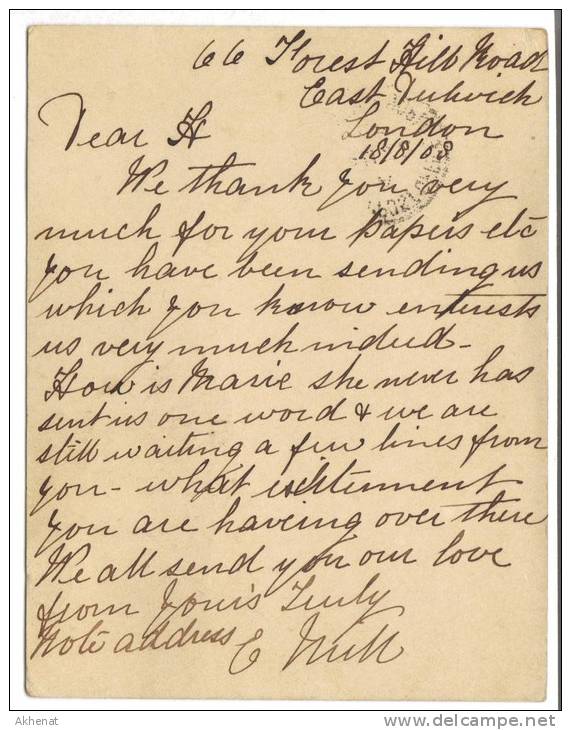 66 Forest Hill Road
East Dulwich
London
18/8/08
Dear H
We thank you very
much for your papers etc
you have been sending us
which you know enterests
us very much indeed -
How is Marie she never has
sent us one word & we are
still waiting a few lines from
you - what
you are haveing over there
We all send you our love
from Yours Truly
Note address E
Akhenat
www.delcampe.net